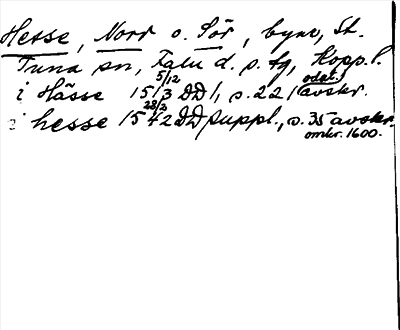 Hesse, Norr o. Sör, byar, St.
Tuna sn, Falu d. s. tg, Kopp.l.
i Hässe 15 5/12 13 DD 1, s. 221 (odat.) avskr.
i hesse 15 28/2 42 DD suppl., s. 35 avskr.
omkr. 1600.